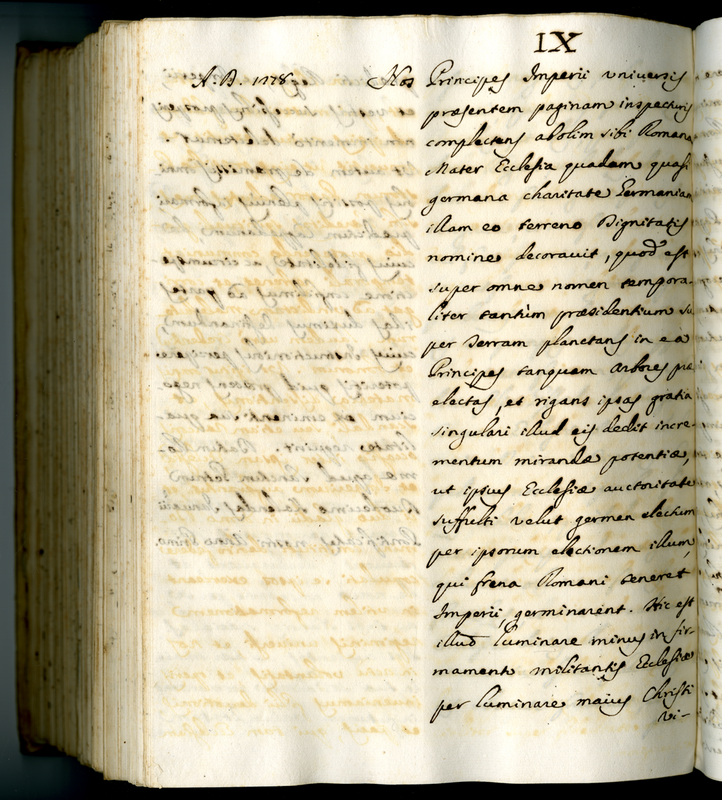 IX
A. D. 1278. Nos Principes Imperii vniuersis
præsentem paginam inspecturis
complectens abolim sibi Romana
Mater Ecclesia quadam quasi
germana charitate Germaniam
illam eo terreno Dignitatis
nomine decorauit, quod est
super omne nomen tempora-
liter tantùm præsidentium su
per terram plantans in ea
Principes tanquam arbores præ
electas, et rigans ipsas gratia
singulari illud eis dedit incre-
mentum mirandæ potentiæ,
ut ipsius Ecclesiæ auctoritate
suffulti velut germen electum
per ipsorum electionem illum,
qui frena Romani teneret
Imperii, germinarent. Hic est
illud luminare minus in fir-
mamento militantis Ecclesiæ
per luminare maius Christi
vi-